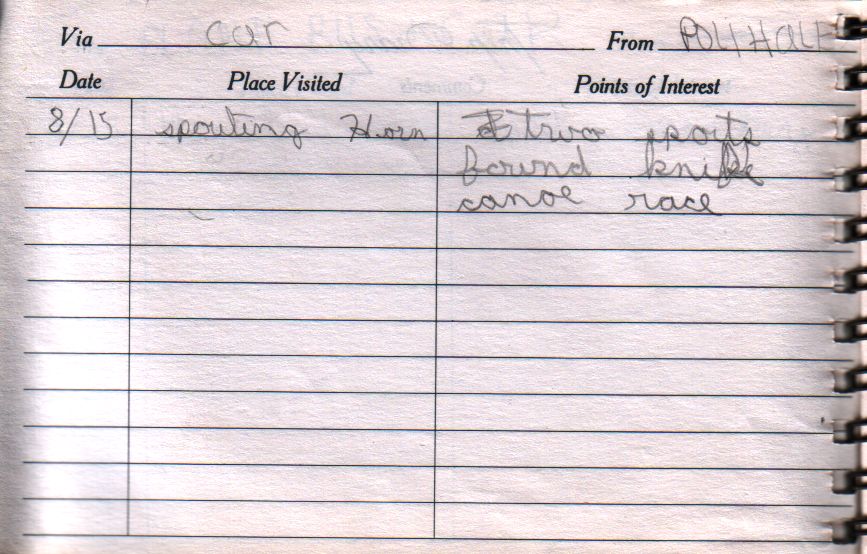 Via car From POLI HALE
Date Place Visited Points of Interest
8/15 spouting Horn two spouts
found knife
canoe race